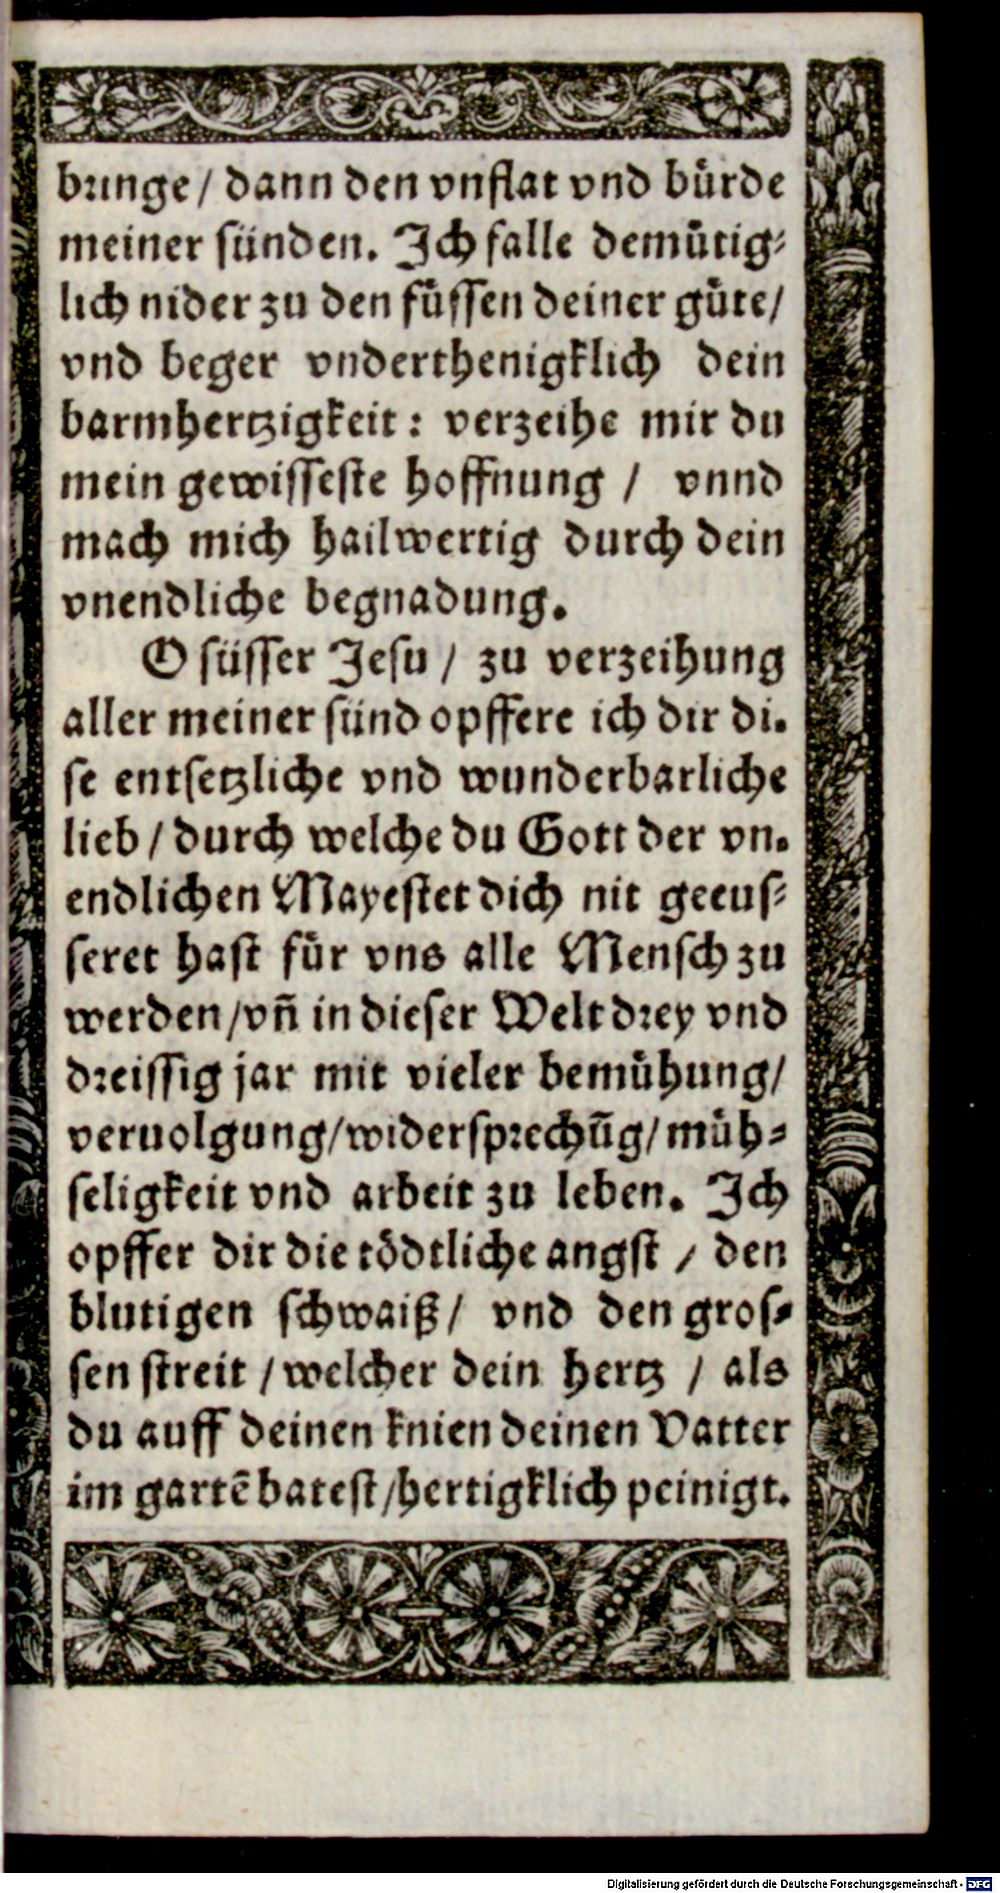 bringe / dann den vnflat vnd bůrde
meiner sünden. Jch falle demůtig⸗
lich nider zu den fůssen deiner gůte /
vnd beger vnderthenigklich dein
barmhertzigkeit : verzeihe mir du
mein gewisseste hoffnung / vnnd
mach mich hailwertig durch dein
vnendliche begnadung.
O süsser Jesu / zu verzeihung
aller meiner sünd opffere ich dir di.
se entsetzliche vnd wunderbarliche
lieb / durch welche du Gott der vn.
endlichen Mayestet dich nit geeus⸗
seret hast für vns alle Mensch zu
werden / vñ in dieser Welt drey vnd
dreissig jar mit vieler bemůhung /
veruolgung / widersprechũg / můh⸗
seligkeit vnd arbeit zu leben. Jch
opffer dir die tödtliche angst / den
blutigen schwaiß / vnd den gros⸗
sen streit / welcher dein hertz / als
du auff deinen knien deinen Vatter
im gartē batest / hertigklich peinigt.
Digitalisierung gefördert durch die Deutsche Forschungsgemeinschaft - DFG